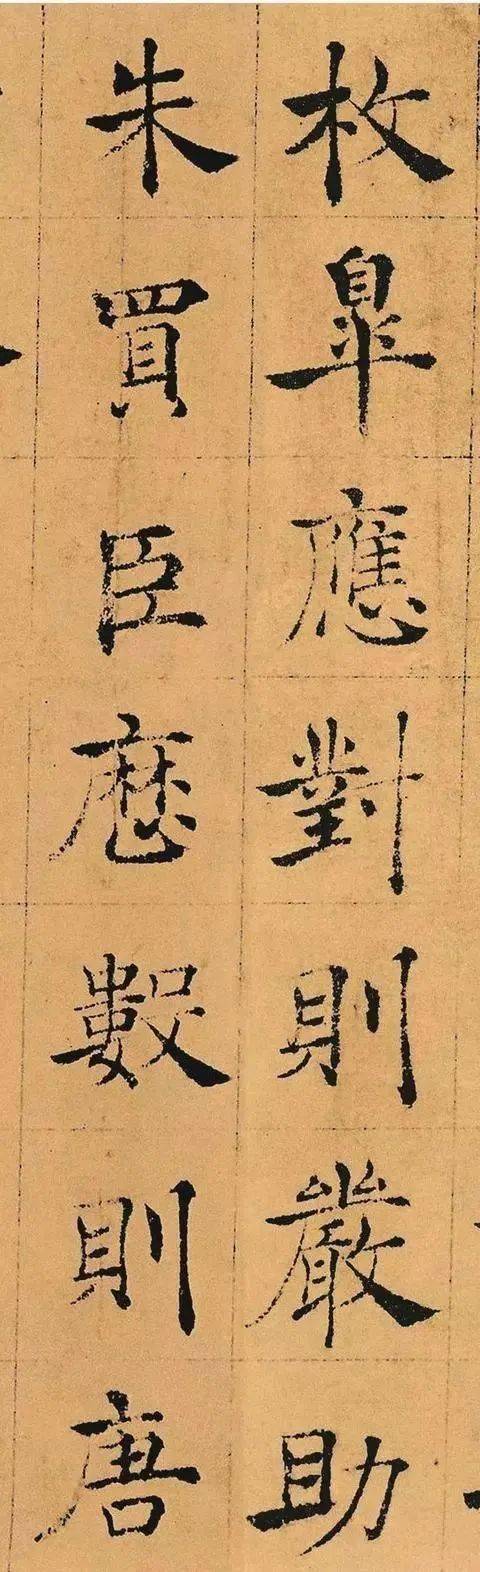 枚臯應對則嚴助
朱買臣曆數則唐